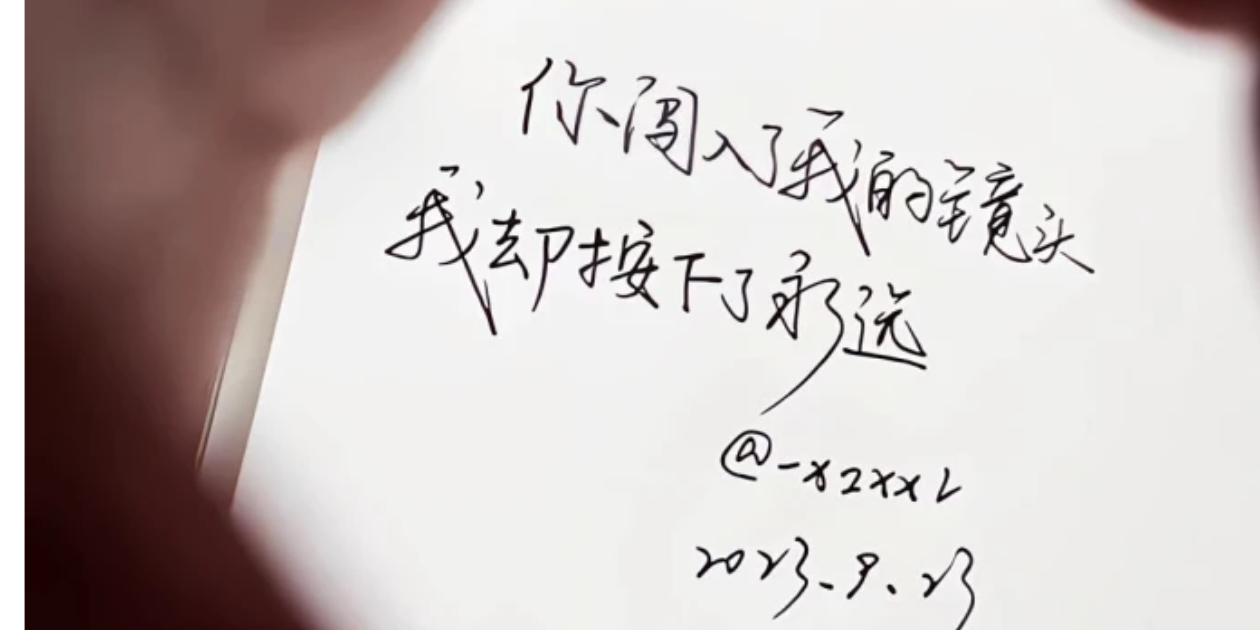 你闯入了我的镜头
我却按下了永远
@-xzxxL
2023.9.23